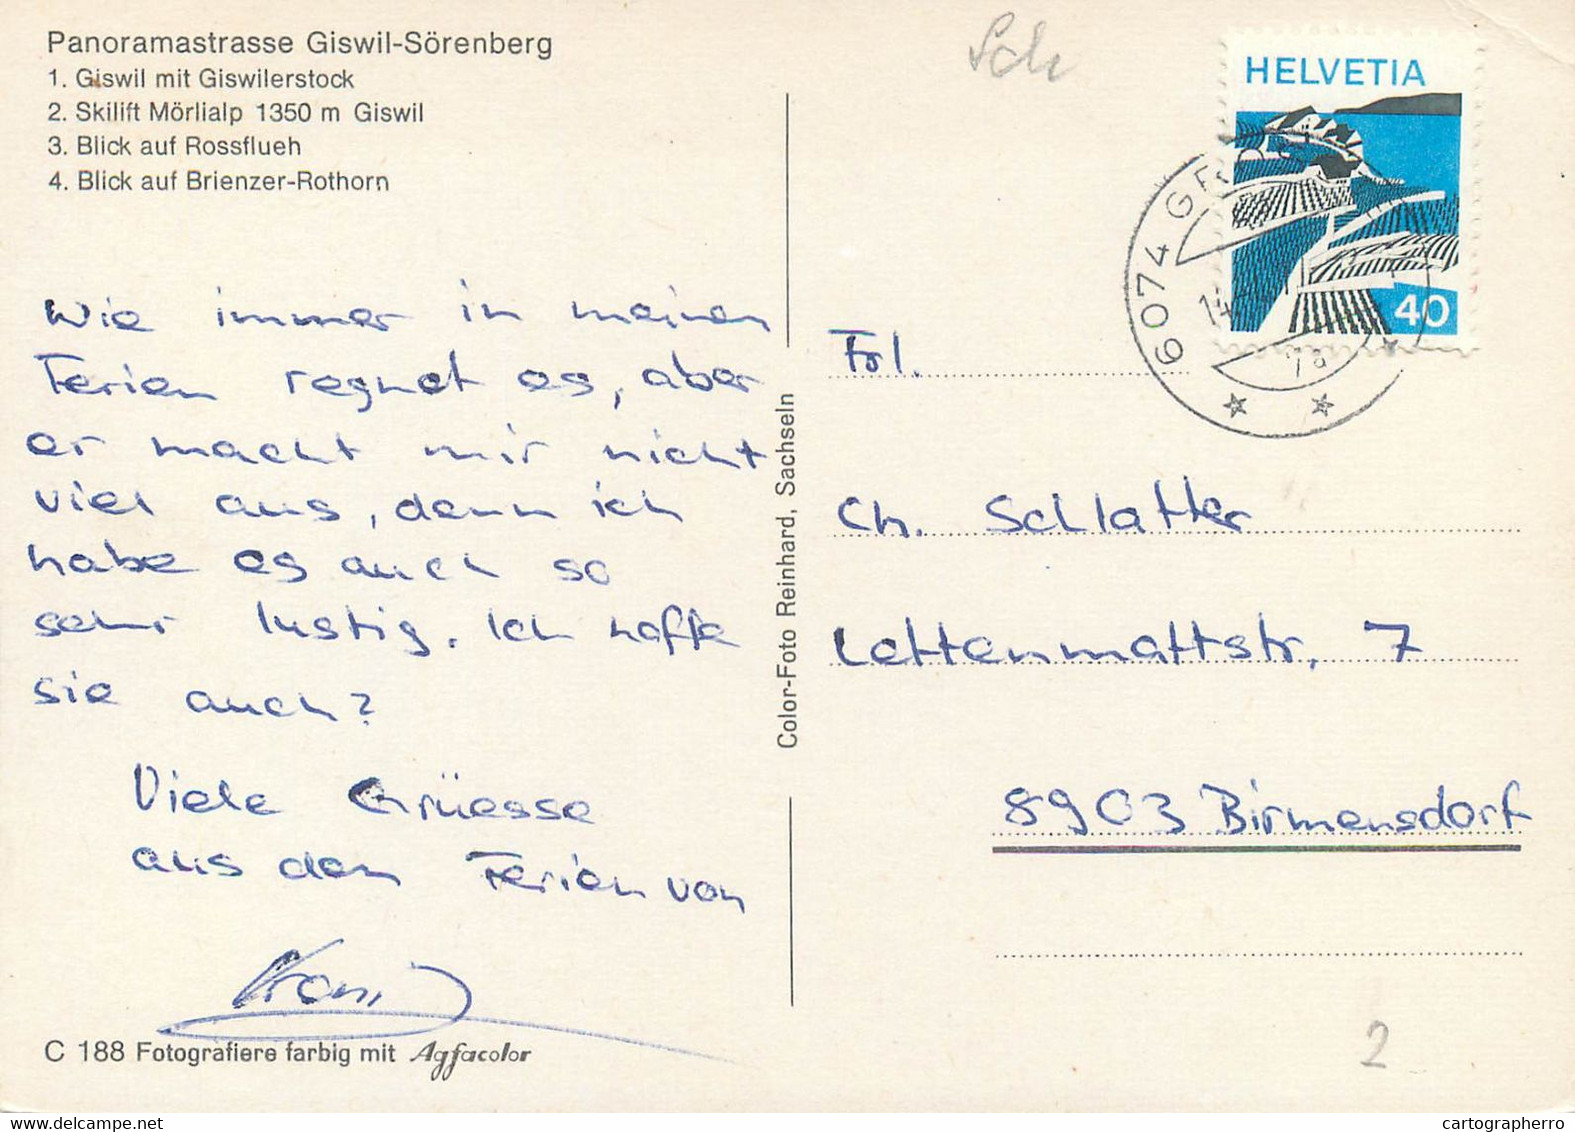 Panoramastrasse Giswil-Sörenberg
1. Giswil mit Giswilerstock
2. Skilift Mörlialp 1350 m Giswil
3. Blick auf Rossflueh
4. Blick auf Brienzer-Rothorn
Wie immer in meinen
Ferien regnet es, aber
er macht mir nicht
viel aus, denn ich
habe es auch so
sehr lustig. Ich hoffe
sie auch?
Viele Grüesse
aus den Ferien von
C 188 Fotografiere farbig mit Agfacolor
Color-Foto Reinhard, Sachseln
Sch
HELVETIA
40
6074
Frl.
Ch. Schlatter
Lettenmattstr. 7
8903 Birmensdorf
2
delcampe.net
cartographerro